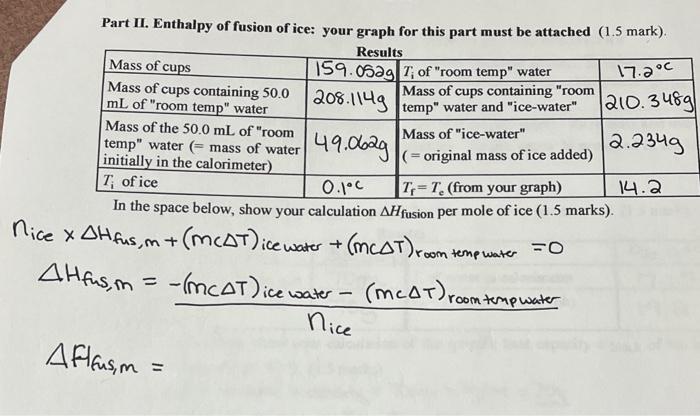 Part II. Enthalpy of fusion of ice: your graph for this part must be attached (1.5 mark).
Results
Mass of cups 159.052g Ti of "room temp" water 17.2°C
Mass of cups containing 50.0 mL of "room temp" water 208.114g Mass of cups containing "room temp" water and "ice-water" 210.348g
Mass of the 50.0 mL of "room temp" water (= mass of water initially in the calorimeter) 49.062g Mass of "ice-water" (= original mass of ice added) 2.234g
Ti of ice 0.1°C Tf = Tc (from your graph) 14.2
In the space below, show your calculation ΔHfusion per mole of ice (1.5 marks).
nice x ΔHfus,m + (mcΔT)ice water + (mcΔT)room temp water = 0
ΔHfus,m = -(mcΔT)ice water - (mcΔT)room temp water
nice
ΔHfus,m =